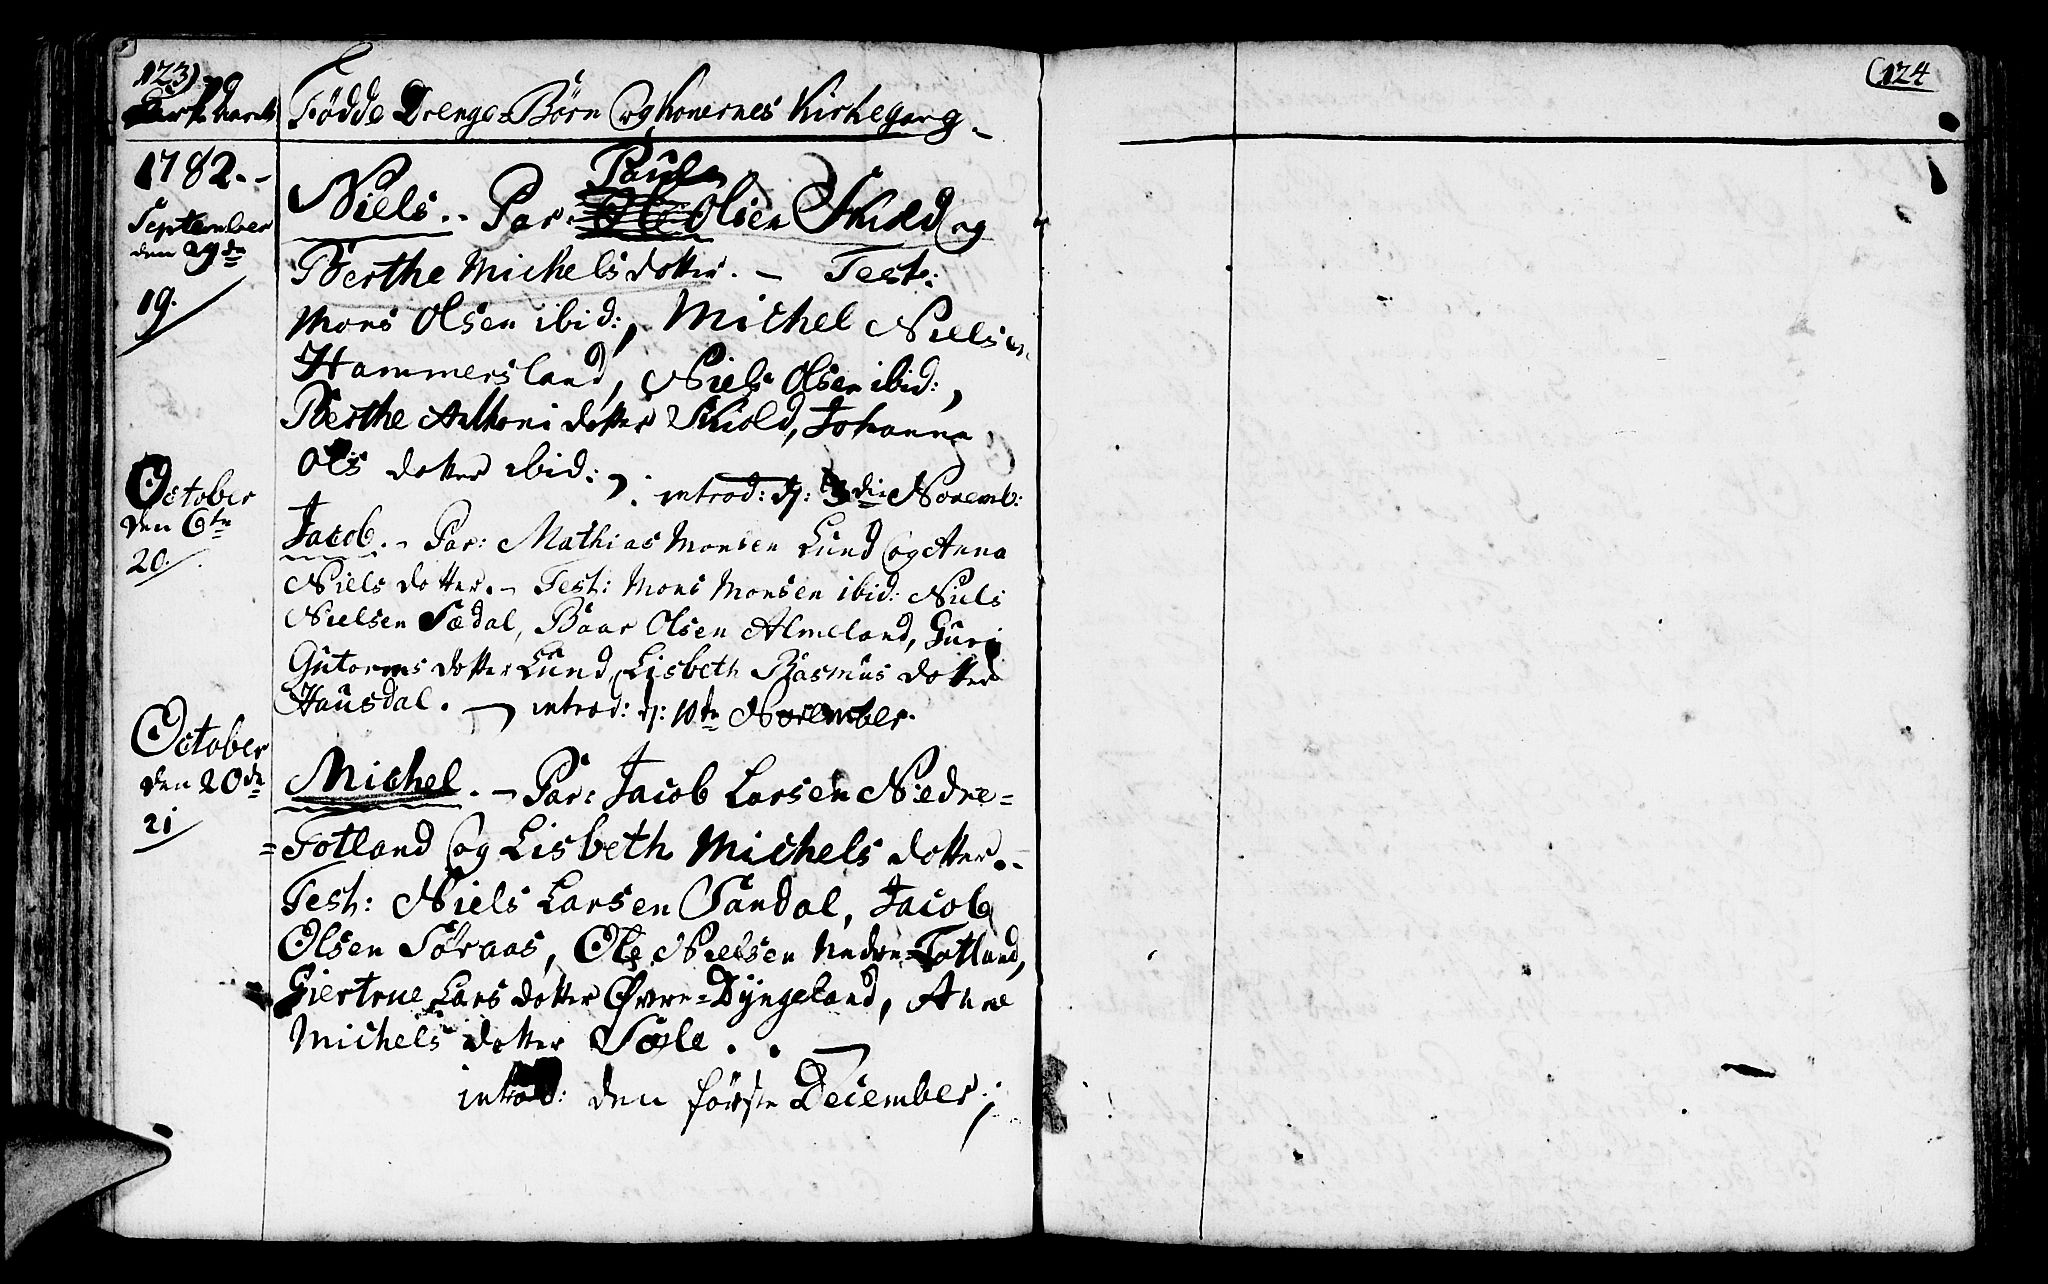 123)
Fødde Drenge-Børn og Konernes Kirkegang.
1782.
September
den 29de
19.
Paul
Niels. Par: Ole Olsen Skiold og
Berthe Michelsdotter. Test:
Mons Olsen ibid:, Michel Nielsen
Hammersland, Niels Olsen ibid:,
Berthe Anthoni dotter Skiold, Johanna
Ols dotter ibid: introd: d: 3die Novemb:
October
den 6te
20.
Jacob. Par: Mathias Monsen Lund og Anna
Niels dotter. Test: Mons Monsen ibid: Niels
Nielsen Sædal, Baar Olsen Almeland, Guri
Gutorms dotter Lund, Lisbeth Rasmus dotter
Hausdal. introd: d: 10de November.
October
den 20de
21
Michel. Par: Jacob Larsen Nedre=
=Totland og Lisbeth Michels dotter.
Test: Niels Larsen Sandal, Jacob
Olsen Søraas, Ole Nielsen Nedre=Totland,
Giertrue Lars dotter Øvre=Dyngeland, Anne
Michels dotter Sæle.
introd: den første December;
(124